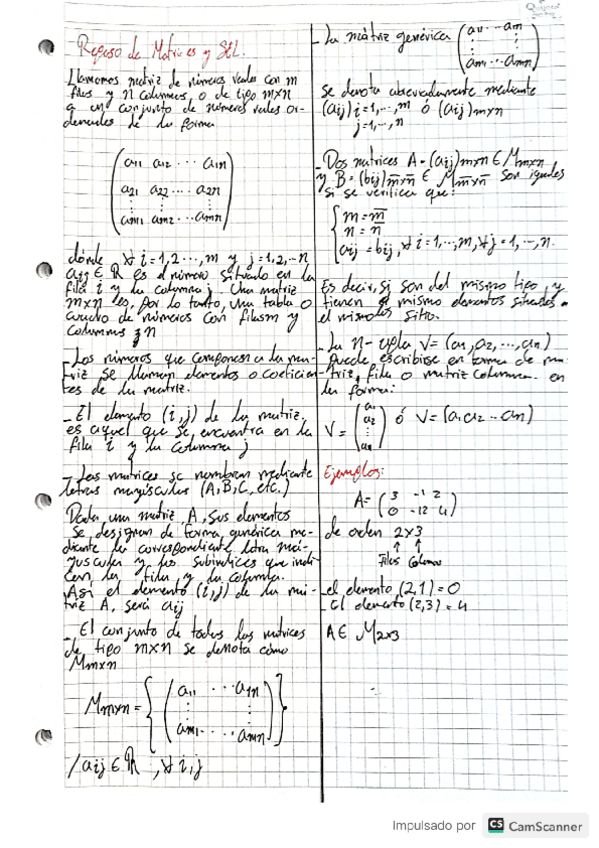 Repaso de Matrices y SEL.
Llamamos matriz de números reales con m
filas y n columnas o de tipo m×n
a un conjunto de números reales or-
denados de la forma
( a11 a12 ... a1n
a21 a22 ... a2n
⋮ ⋮ ⋮
am1 am2 ... amn )
dónde, ∀i=1,2...,m y j=1,2,..n
aij ∈ ℝ es el número situado en la
fila i y la columna j. Una matriz
m×n es, por lo tanto, una tabla o
cuadro de números con filas m y
columnas n
- Los números que componen a la ma-
triz se llaman elementos o coeficien-
tes de la matriz.
- El elemento (i,j) de la matriz,
es aquel que se encuentra en la
fila i y la columna j
- Las matrices se nombran mediante
letras mayúsculas (A,B,C, etc.)
Dada una matriz A, sus elementos
se designan de forma genérica me-
diante la correspondiente letra
y los subíndices que indi-
can la fila y la columna.
Así el elemento (i,j) de la ma-
triz A, será aij
- El conjunto de todas las matrices
de tipo m×n se denota cómo
Mm×n
Mm×n = { ( a11 ... a1n
⋮ ⋮
am1 ... amn ) }
/aij ∈ ℝ, ∀i,j
- La matriz genérica ( a11 ... a1n
⋮ ⋮
am1 ... amn )
se denota abreviadamente mediante
(aij) i=1,...,m ó (aij)m×n
j=1,...,n
- Dos matrices A=(aij)m×n ∈ Mm×n
y B=(bij)m̅×n̅ ∈ Mm̅×n̅ son iguales
si se verifica que:
{ m = m̅
n = n̅
aij = bij, ∀i=1,...,m, ∀j=1,...,n.
Es decir, si son del mismo tipo y
tienen mismo elementos situados
el mismo sitio.
- La n-upla V=(a1,a2,...,an)
puede escribirse en forma de ma-
triz, fila o matriz columna en
la forma:
V = ( a1
a2
⋮
an ) ó V=(a1 a2 ... an)
Ejemplos:
A= ( 3 -1 2
0 -12 4 )
de orden 2×3
↑ ↑
Filas Columnas
- el elemento (2,1) = 0
- El elemento (2,3) = 4
A ∈ M2×3
Impulsado por CS CamScanner